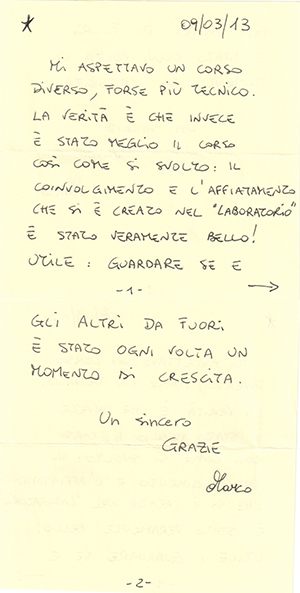 * 09/03/13
MI ASPETTAVO UN CORSO
DIVERSO, FORSE PIÙ TECNICO.
LA VERITÀ È CHE INVECE
È STATO MEGLIO IL CORSO
COSÌ COME SI SVOLTO: IL
COINVOLGIMENTO E L'AFFIATAMENTO
CHE SI È CREATO NEL "LABORATORIO"
È STATO VERAMENTE BELLO!
UTILE: GUARDARE SE E
-1- →
GLI ALTRI DA FUORI
È STATO OGNI VOLTA UN
MOMENTO DI CRESCITA.
Un sincero
GRAZIE
Marco
-2-